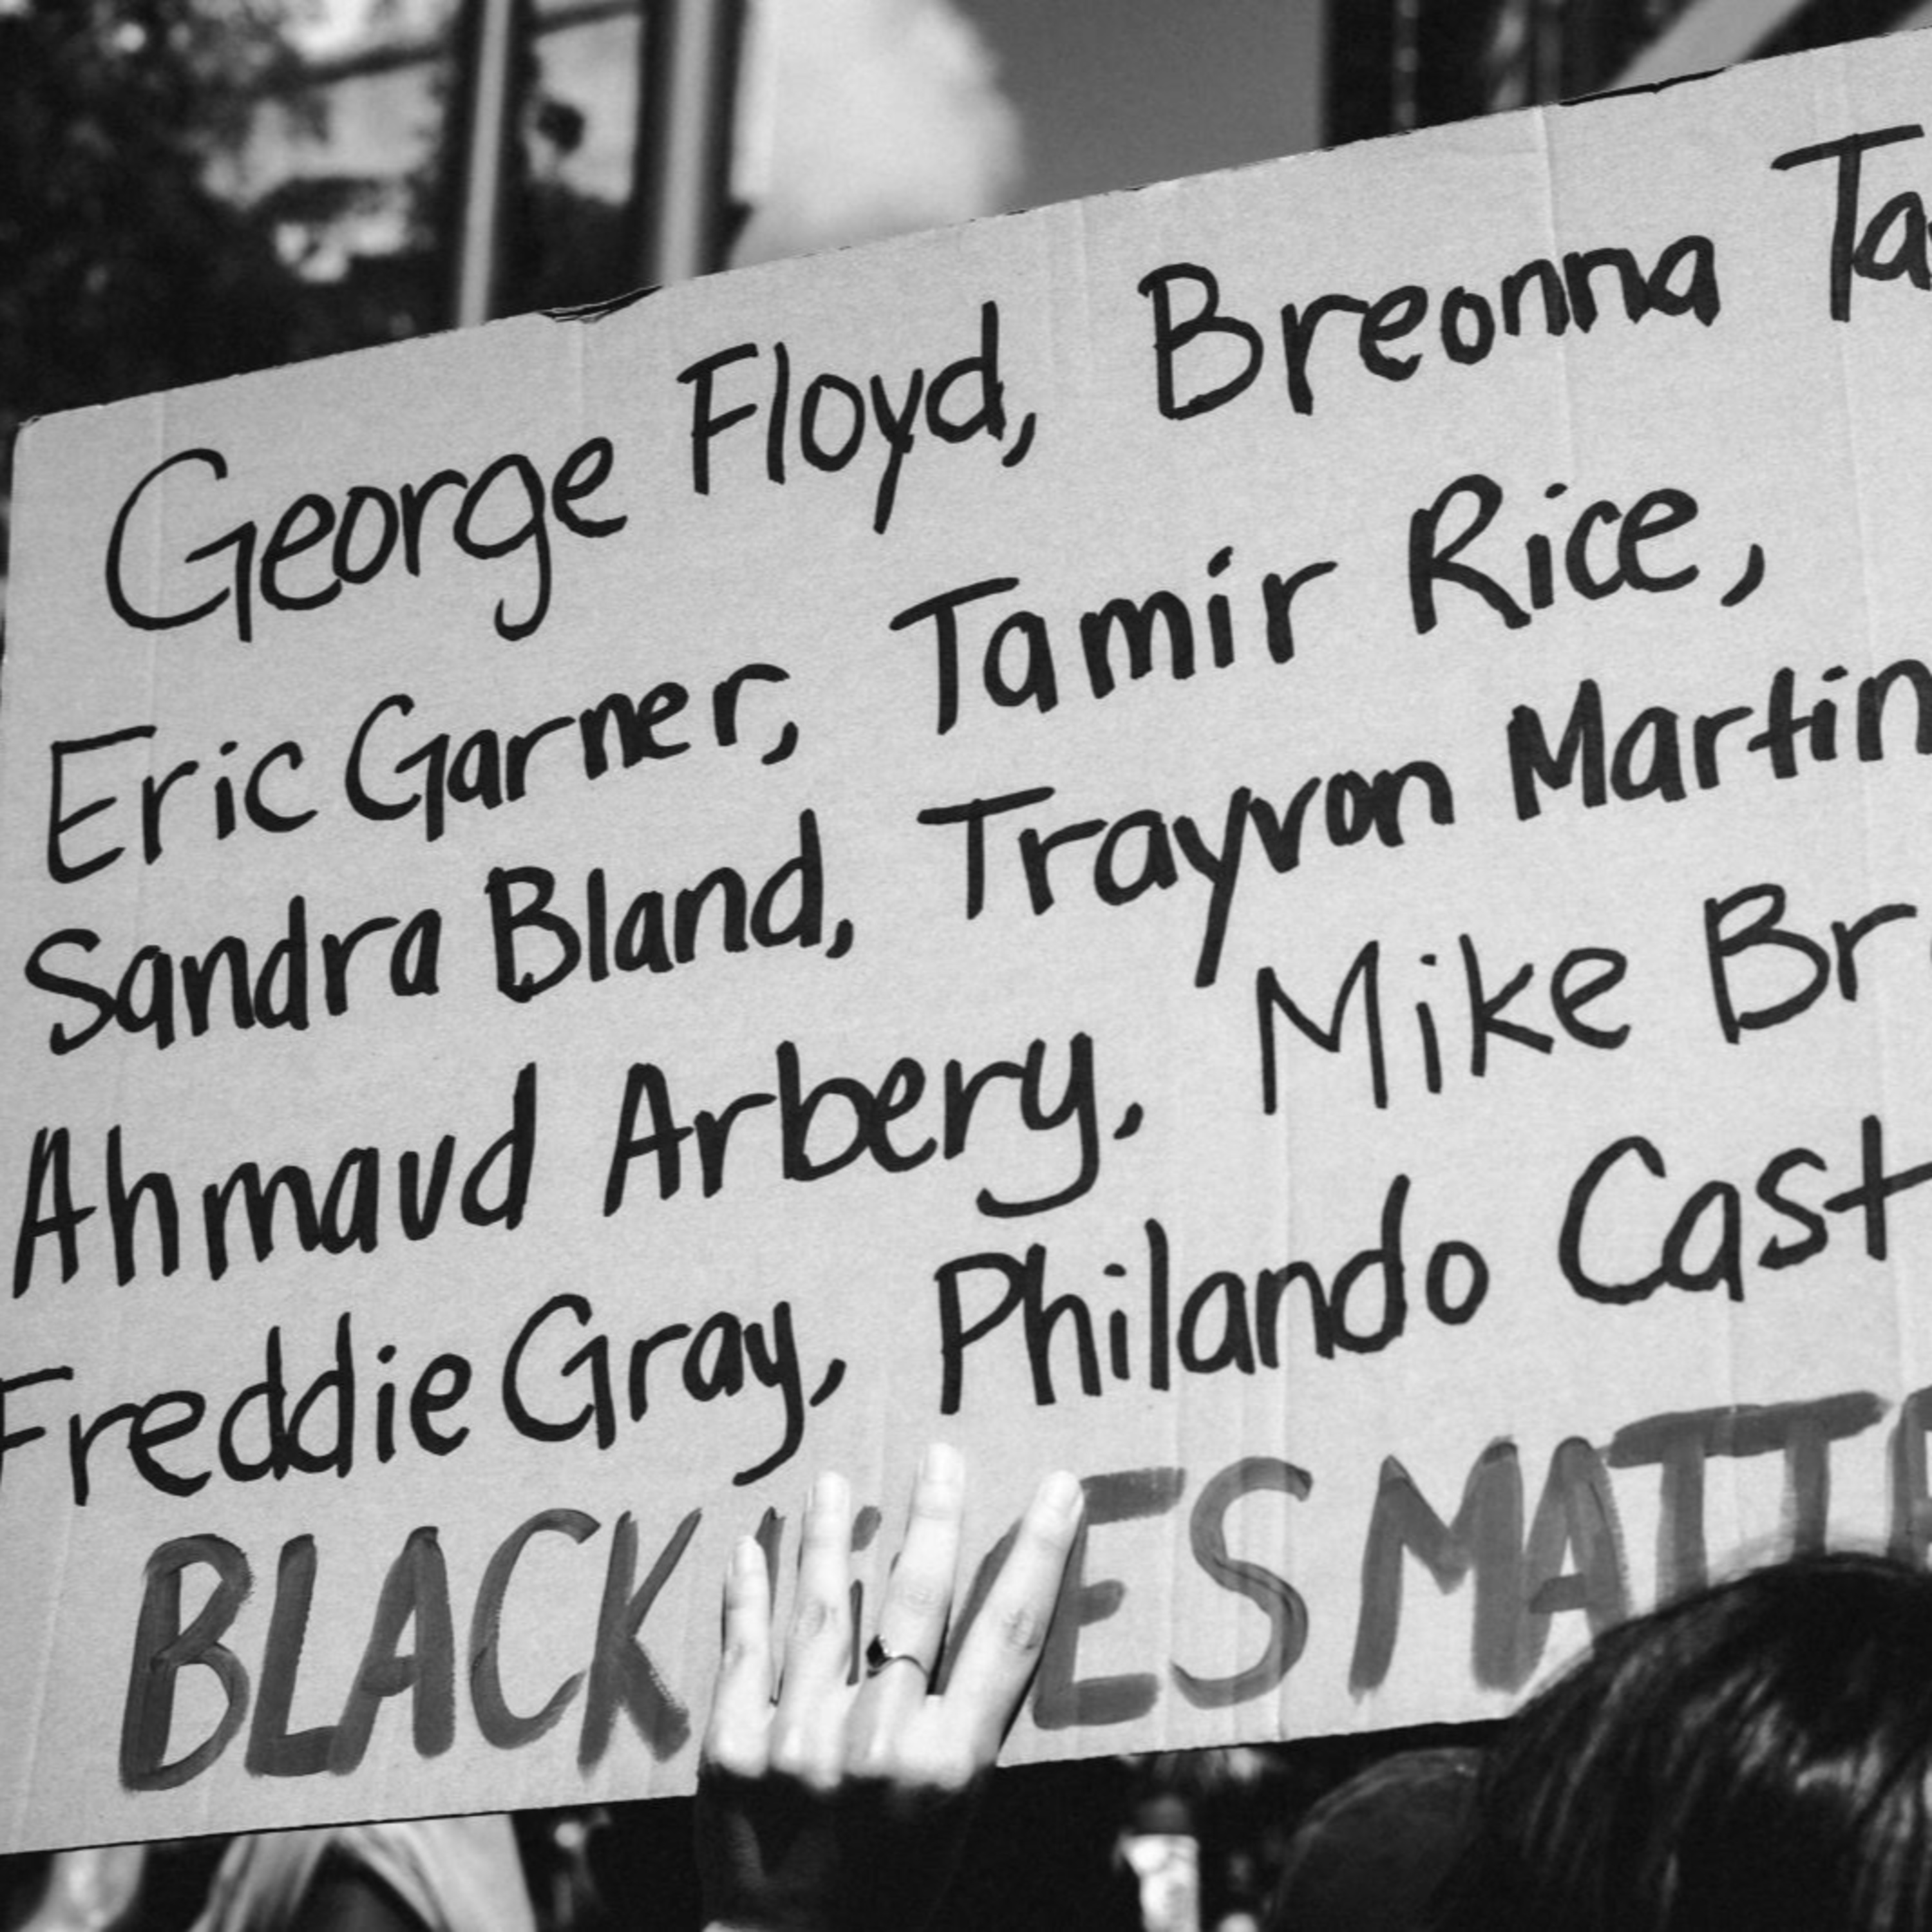 George Floyd, Breonna Ta
Eric Garner, Tamir Rice,
Sandra Bland, Trayvon Martin
Ahmaud Arbery, Mike Br
Freddie Gray, Philando Cast
BLACK LiVES MATTE